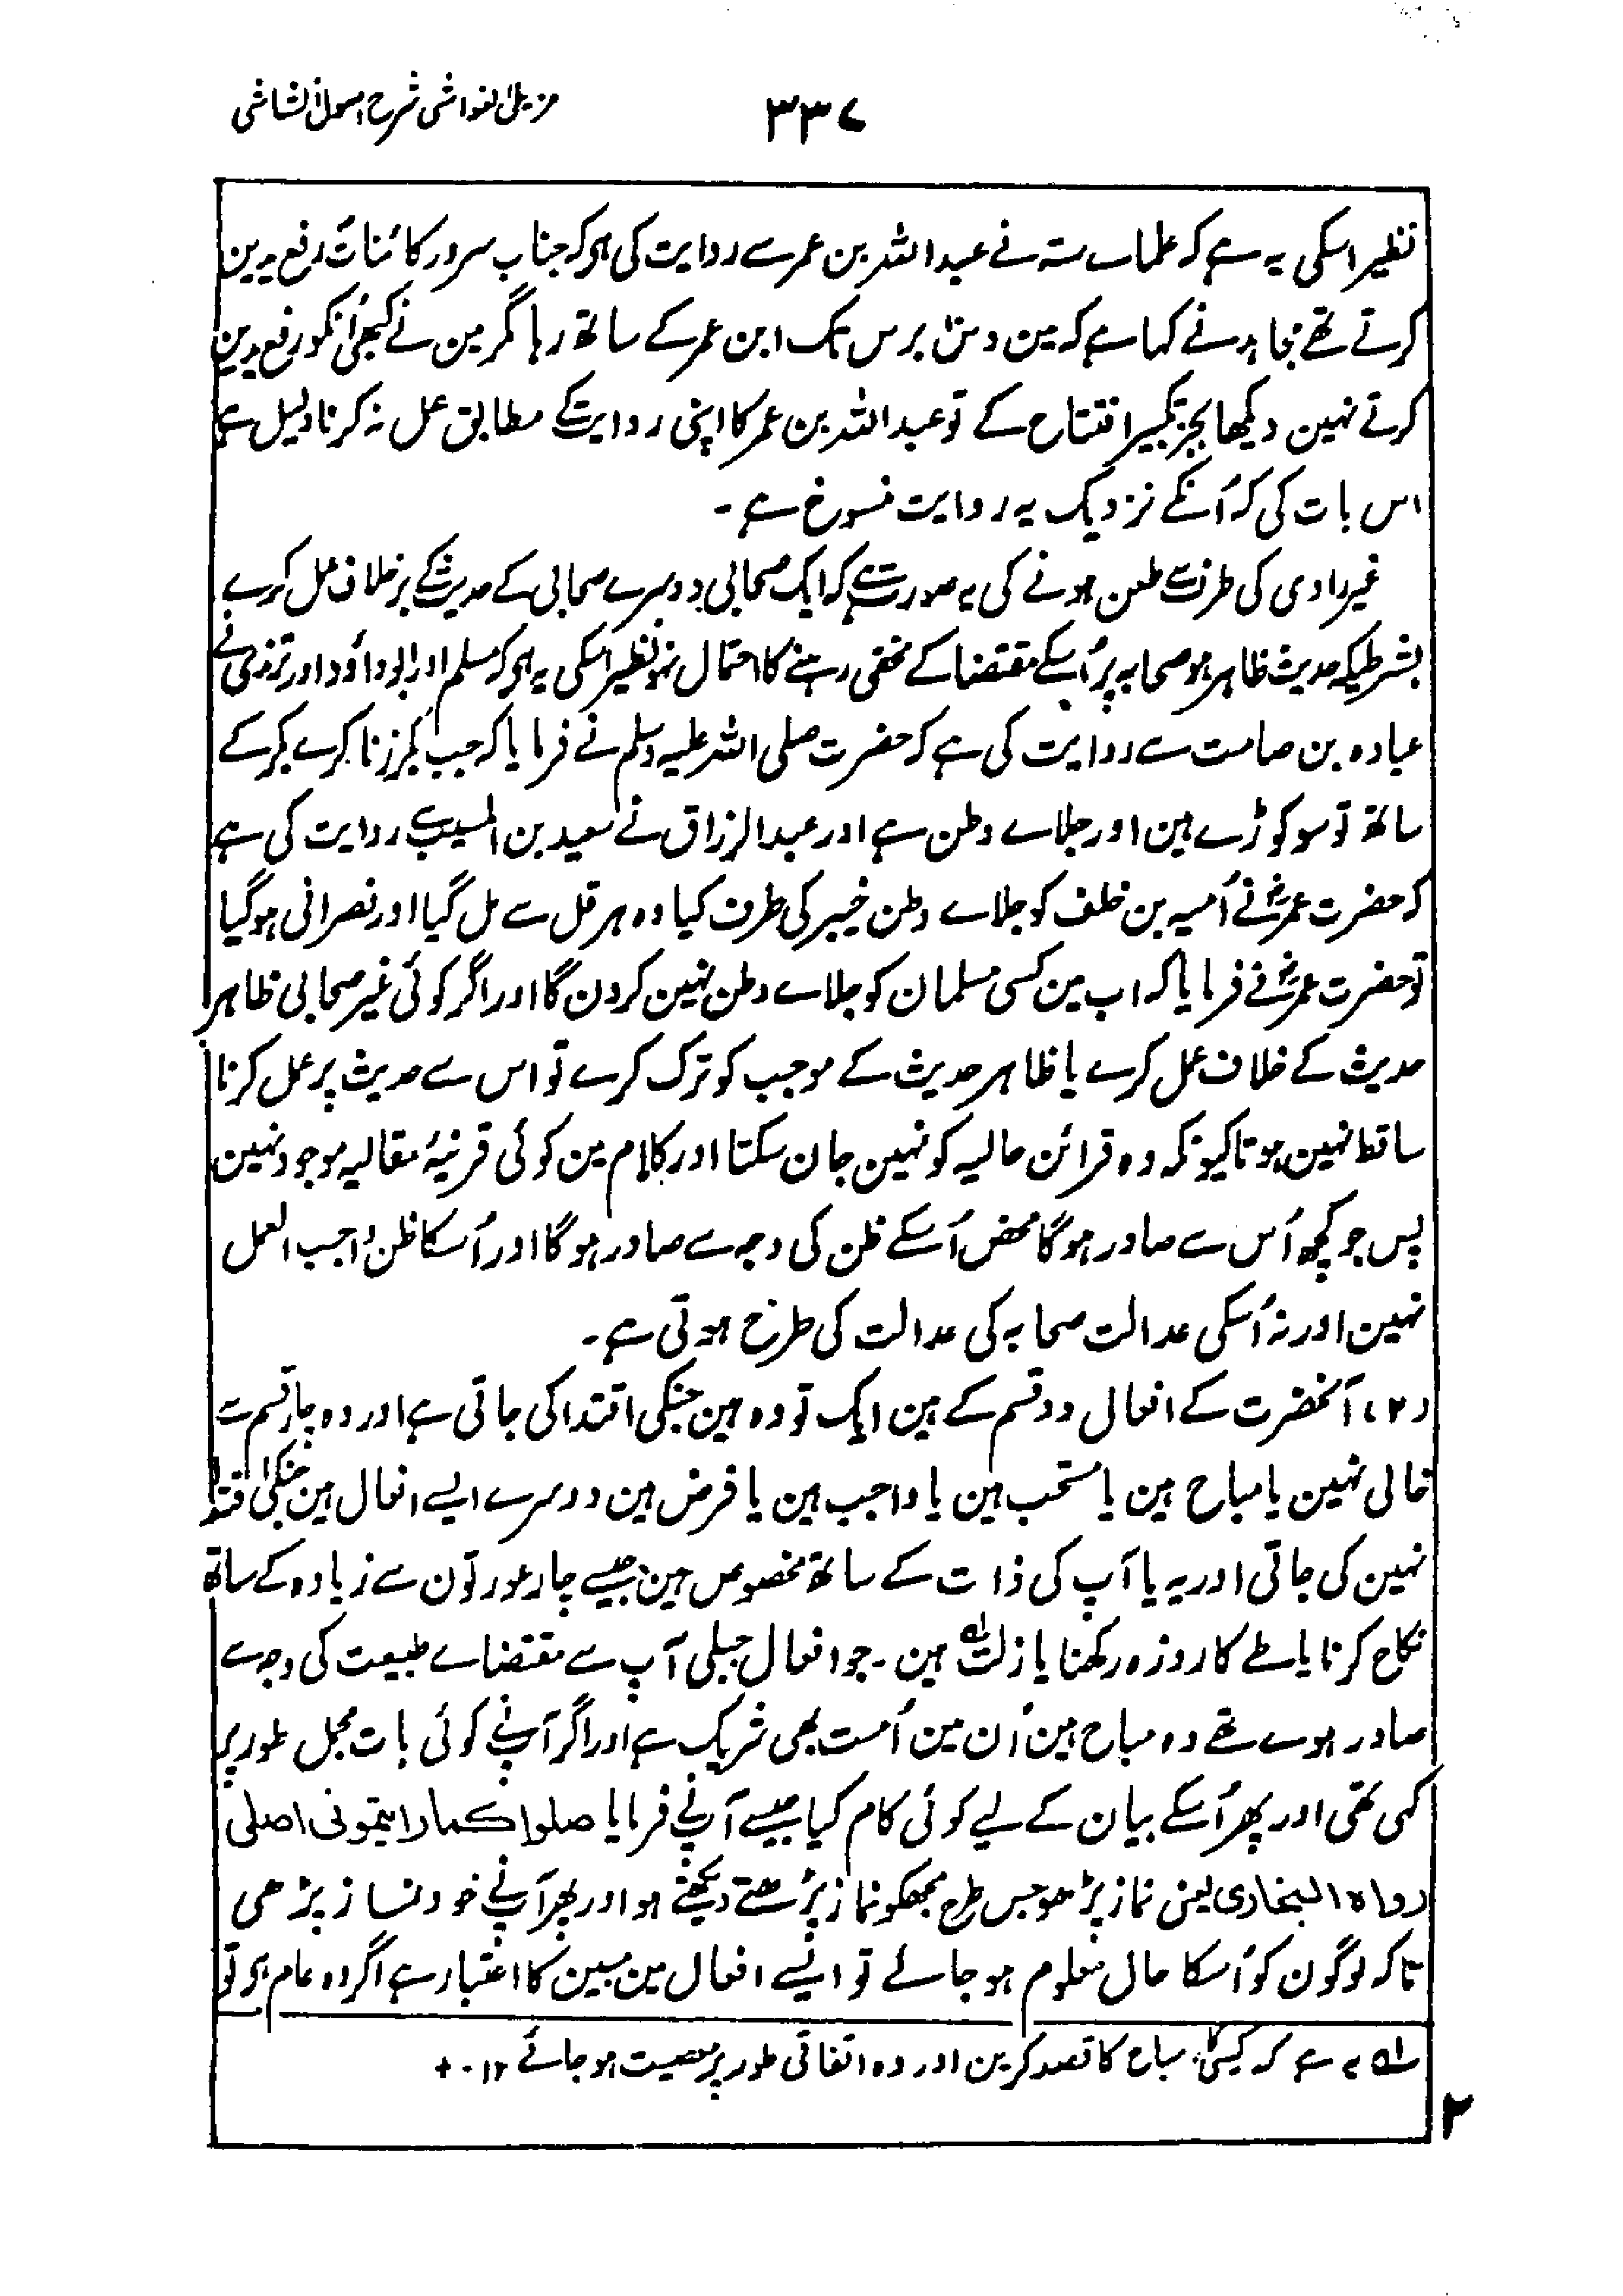 مزیل الغواشی شرح اصول الشاشی
۳۳۷
نظیر اسکی یہ ہے کہ علماے ستہ نے عبد اللہ بن عمر سے روایت کی ہی کہ جناب سرور کائنات رفع یدین
کرتے تھے مجاہد نے کہا ہے کہ مین دس برس تک ابن عمر کے ساتھ رہا مگر مین نے کبھی اُنکو رفع یدین
کرتے نہین دیکھا بجز تکبیر افتتاح کے تو عبد اللہ بن عمر کا اپنی روایت کے مطابق عمل نہ کرنا دلیل ہے
اس بات کی کہ اُنکے نزدیک یہ روایت منسوخ ہے ۔
غیر راوی کی طرف سے طعن ہونے کی یہ صورت ہے کہ ایک صحابی دوسرے صحابی کے حدیث کے بر خلاف عمل کرے
بشرطیکہ حدیث ظاہر ہو صحابہ پر اُسکے مقتضا کے مخفی رہنے کا احتمال نہو نظیر اسکی یہ ہی کہ مسلم اور ابو داؤد اور ترمذی نے
عبادہ بن صامت سے روایت کی ہے کہ حضرت صلی اللہ علیہ وسلم نے فرمایا کہ جب بکر زنا کرے بکر کے
ساتھ تو سو کوڑے ہین اور جلاے وطن ہے اور عبد الرزاق نے سعید بن المسیب سے روایت کی ہے
کہ حضرت عمرؓ نے اُمیہ بن خلف کو جلاے وطن خیبر کی طرف کیا وہ ہرقل سے مل گیا اور نصرانی ہو گیا
تو حضرت عمرؓ نے فرمایا کہ اب مین کسی مسلمان کو جلاے وطن نہین کرون گا اور اگر کوئی غیر صحابی ظاہر
حدیث کے خلاف عمل کرے یا ظاہر حدیث کے موجب کو ترک کرے تو اس سے حدیث پر عمل کرنا
ساقط نہین ہوتا کیونکہ وہ قرائن حالیہ کو نہین جان سکتا اور کلام مین کوئی قرینۂ مقالیہ موجود نہین
پس جو کچھ اُس سے صادر ہوگا محض اُسکے ظن کی وجہ سے صادر ہو گا اور اُسکا ظن واجب العمل
نہین اور نہ اُسکی عدالت صحابہ کی عدالت کی طرح ہوتی ہے ۔
(۲) آنحضرت کے افعال دو قسم کے ہین ایک تو وہ ہین جنکی اقتدا کی جاتی ہے اور وہ چار قسم سے
خالی نہین یا مباح ہین یا مستحب ہین یا واجب ہین یا فرض ہین دوسرے ایسے افعال ہین جنکی اقتدا
نہین کی جاتی اور یہ یا آپ کی ذات کے ساتھ مخصوص ہین جیسے چار عورتون سے زیادہ کے ساتھ
نکاح کرنا یا طے کا روزہ رکھنا یا زلت لہ ہین ۔ جو افعال جبلی آپ سے مقتضاے طبیعت کی وجہ سے
صادر ہوے تھے وہ مباح ہین اُن مین اُمت بھی شریک ہے اور اگر آپنے کوئی بات مجمل طور پر
کہی تھی اور پھر اُسکے بیان کے لیے کوئی کام کیا جیسے آپنے فرمایا صلوا کما رایتمونی اصلی
رواہ البخاری یعنی نماز پڑھو جس طرح مجھکو نماز پڑھتے دیکھتے ہو اور پھر آپنے خود نماز پڑھی
تاکہ لوگون کو اُسکا حال معلوم ہو جائے تو ایسے افعال مین مبین کا اعتبار ہے اگر وہ عام ہی تو
لہ یہ ہے کہ کسی مباح کا قصد کرین اور وہ اتفاقی طور پر معصیت ہو جائے ۱۲
۲